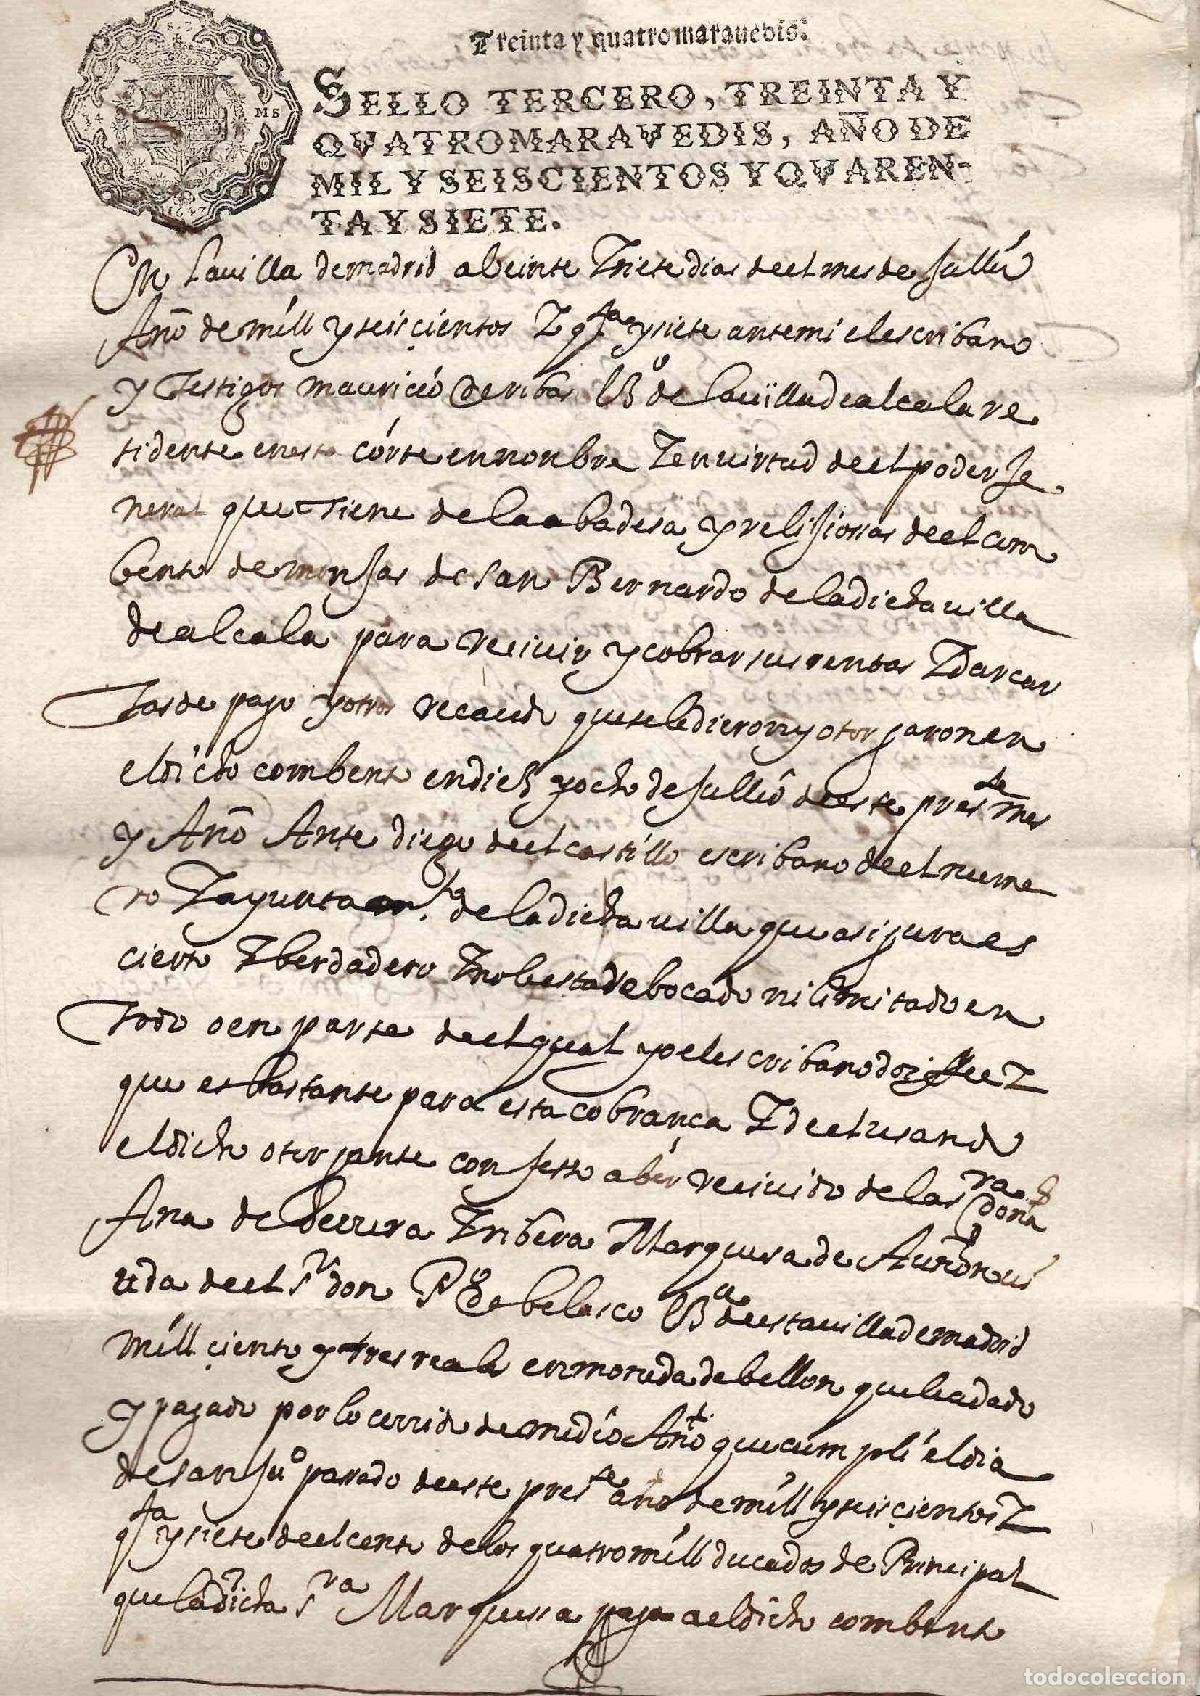 Treinta y quatro maravedis.
SELLO TERCERO, TREINTA Y
QVATROMARAVEDIS, AÑO DE
MIL Y SEISCIENTOS Y QVAREN-
TA Y SIETE.
En la villa de madrid a beinte Y siete dias de el mes de Jullio
Año de mill y seiscientos Y qta y siete ante mi el escribano
y testigos mauricio de ribas Vº de la villa de alcala re
sidente en esta corte en nonbre Y en virtud de el poder Je
neral que tiene de la abadesa y relijiosas de el com
bento de monjas de san Bernardo de la dicha villa
de alcala para recivir y cobrar sus rentas Y dar car
tas de pago y otros recaudos que se le dieron y otorgaron en
el dicho combento en diez y ocho de Jullio de este preste mes
y Año Ante diego de el castillo escribano de el nume
ro Y ayuntamto de la dicha villa que asi jura es
cierto Y berdadero Y no le esta rebocado ni limitado en
todo o en parte de el qual yo el escribano doi ffee Y
que es bastante para esta cobrança Y de el usando
el dicho otorgante confesso aber recivido de la sra doña
Ana de Herrera Y ribera Marquesa de Auñon vi
uda de el sr don Pº de belasco Vª de esta villa de madrid
mill ciento y tres reales en moneda de bellon que le a dado
y pagado por lo corrido de medio Año que cumplio el dia
de san Juº pasado de este preste año de mill y seiscientos Y
qta y siete de el censo de los quatro mill ducados de Principal
que la dicha sra Marquesa paga a el dicho combento
todocoleccion